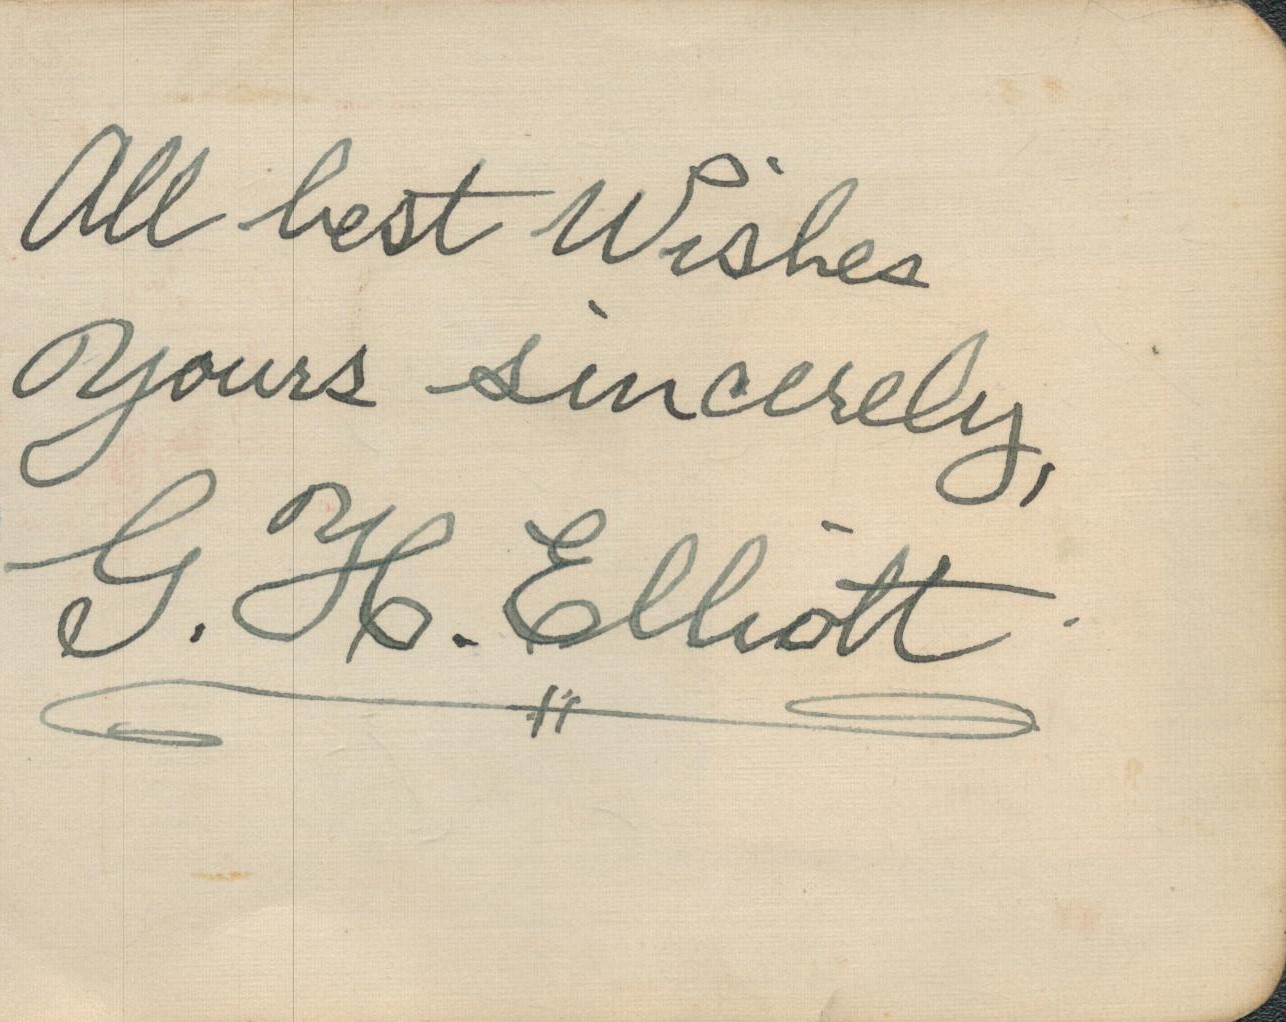 All best Wishes
Yours sincerely,
G. H. Elliott.